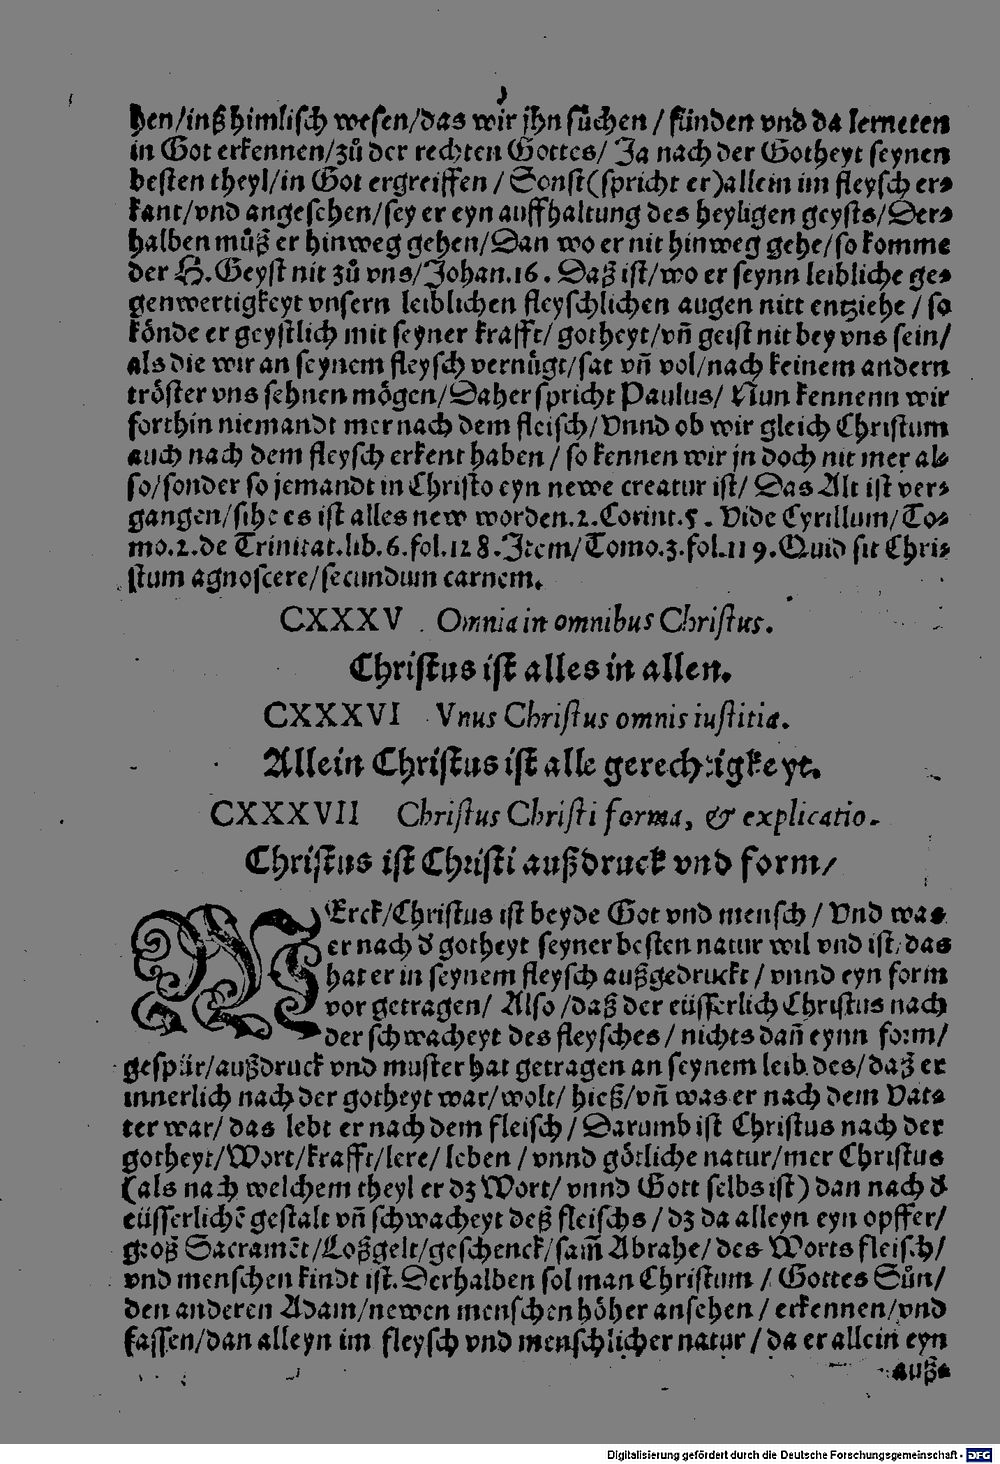 hen/inß himlisch wesen/das wir jhn sůchen / fünden vnd da lerneten
in Got erkennen/zů der rechten Gottes/ Ja nach der Gotheyt seynen
besten theyl/in Got ergreiffen / Sonst(spricht er)allein im fleysch er⸗
kant/vnd angesehen/sey er eyn auffhaltung des heyligen geysts/Der⸗
halben můß er hinweg gehen/Dan wo er nit hinweg gehe/so komme
der H. Geyst nit zů vns/Johan.16. Daß ist/wo er seynn leibliche ge⸗
genwertigkeyt vnsern leiblichen fleyschlichen augen nitt entziehe / so
könde er geystlich mit seyner krafft/ gotheyt/vñ geist nit bey vns sein/
als die wir an seynem fleysch vernügt/sat vñ vol/nach keinem andern
tröster vns sehnen mögen/Daher spricht Paulus/ Nun kennenn wir
forthin niemandt mer nach dem fleisch/ Vnnd ob wir gleich Christum
auch nach dem fleysch erkent haben / so kennen wir jn doch nit mer al⸗
so/sonder so jemandt in Christo eyn newe creatur ist/ Das Alt ist ver⸗
gangen/sihe es ist alles new worden.2.Corint.5. Vide Cyrillum/To⸗
mo.2.de Trinitat.lib.6.fol.128.Item/Tomo.3.fol.119.Quid sit Chri⸗
stum agnoscere/secundum carnem.
CXXXV . Omnia in omnibus Christus.
Christus ist alles in allen.
CXXXVI Vnus Christus omnis iustitia.
Allein Christus ist alle gerechtigkeyt.
CXXXVII Christus Christi forma, & explicatio.
Christus ist Christi außdruck vnd form/
MErck/Christus ist beyde Got vnd mensch / Vnd was
er nach d' gotheyt seyner besten natur wil vnd ist/das
hat er in seynem fleysch außgedruckt / vnnd eyn form
vor getragen/ Also /daß der eüsserlich Christus nach
der schwacheyt des fleysches / nichts dañ eynn form/
gespür/außdruck vnd muster hat getragen an seynem leib des/daß er
innerlich nach der gotheyt war/wolt/ hieß/vñ was er nach dem Vat⸗
ter war/das lebt er nach dem fleisch / Darumb ist Christus nach der
gotheyt/Wort/krafft/lere/ leben / vnnd götliche natur/mer Christus
(als nach welchem theyl er dz Wort/ vnnd Gott selbs ist) dan nach d'
eüsserlichē gestalt vñ schwacheyt deß fleischs / dz da alleyn eyn opffer/
groß Sacramēt/Loßgelt/geschenck/sam̄ Abrahe/des Worts fleisch/
vnd menschen kindt ist. Derhalben sol man Christum / Gottes Sůn/
den anderen Adam/newen menschen höher ansehen / erkennen/vnd
fassen/dan alleyn im fleysch vnd menschlicher natur / da er allein eyn
auß⸗
Digitalisierung gefördert durch die Deutsche Forschungsgemeinschaft - DFG